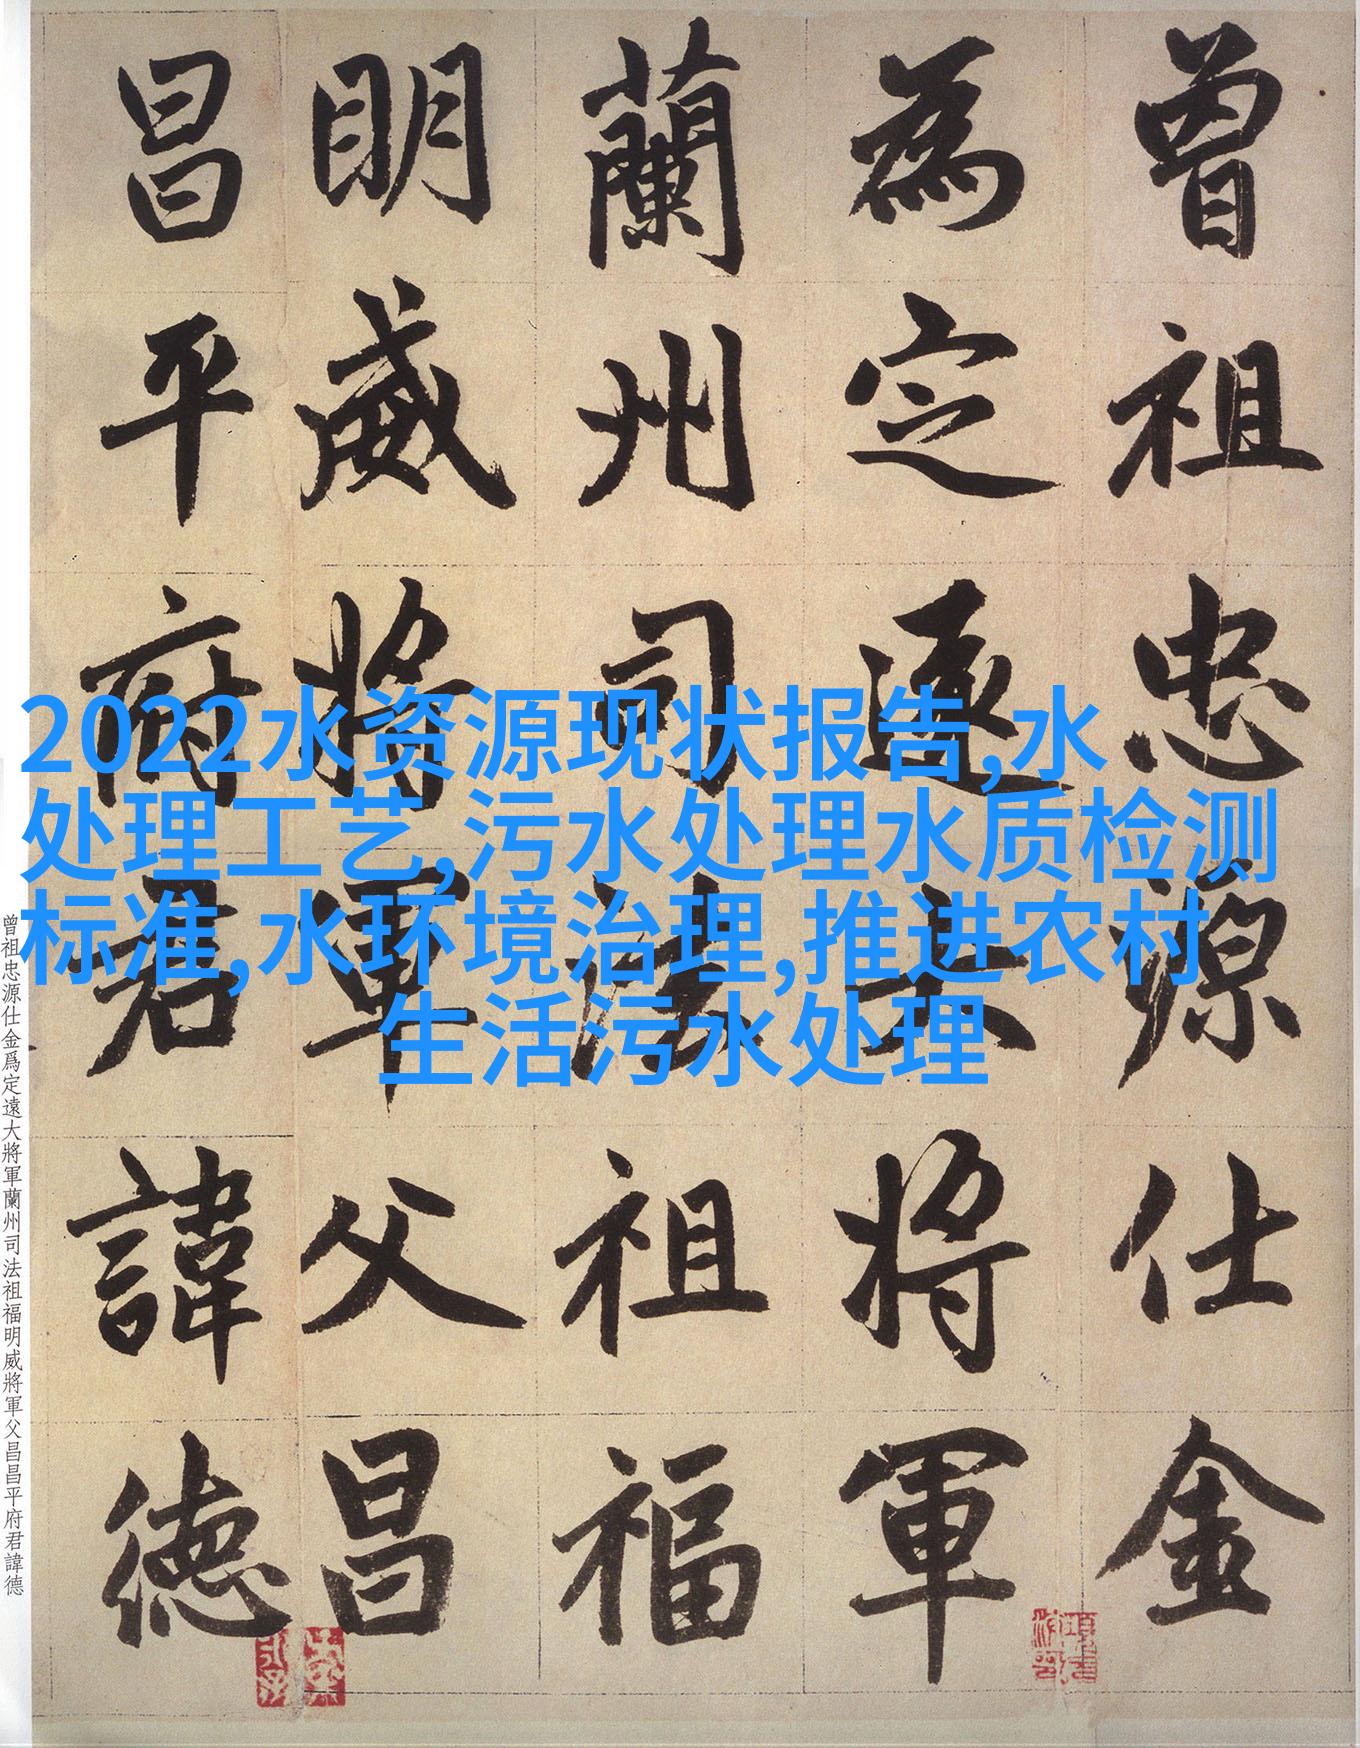 曾祖忠源仕金
為定遠大将軍
蘭州司法祖福
明威将軍父昌
昌平府君諱德
2022水资源现状报告,水
处理工艺,污水处理水质检测
标准,水环境治理,推进农村
生活污水处理
曾祖忠源仕金爲定遠大將軍蘭州司法祖福明威將軍父昌昌平府君諱德